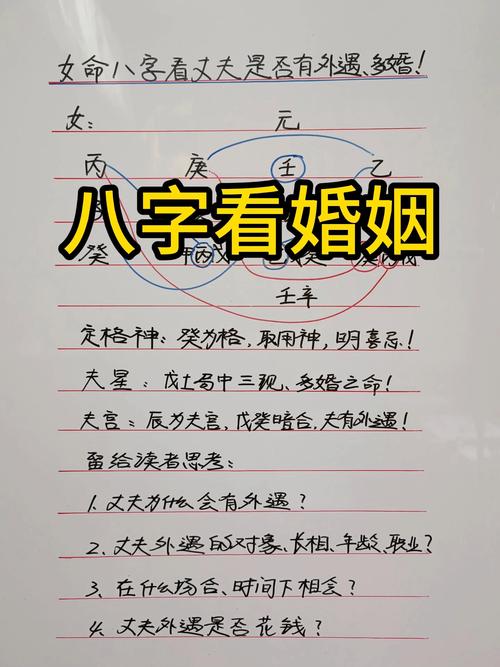 女命八字看丈夫是否有外遇、多婚!
女: 元
丙 庚 壬 乙
八字看婚姻
癸 丙戊
壬辛
定格神: 癸为格, 取用神, 明喜忌!
夫星: 戊土局中三现、多婚之命!
夫宫: 辰为夫宫, 戊癸暗合, 夫有外遇!
留给读者思考:
1. 丈夫为什么会有外遇?
2. 丈夫外遇的对象、长相、年龄、职业?
3. 在什么场合、时间下相会?
4. 丈夫外遇是否花钱?